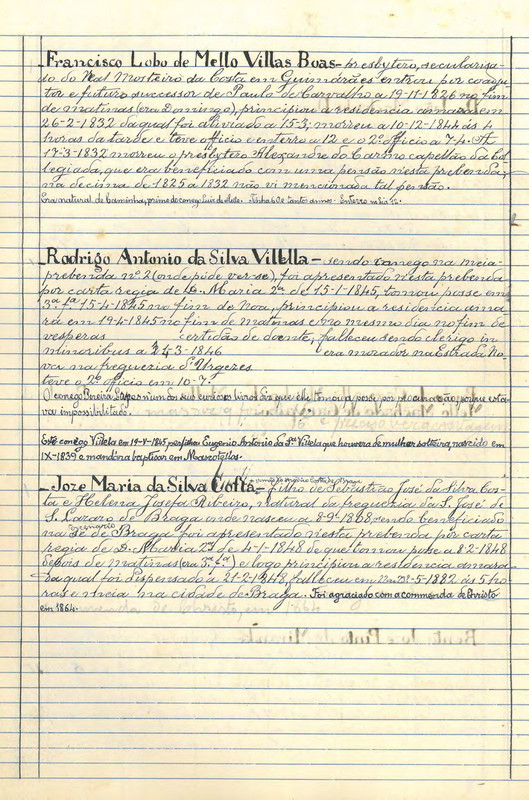 Francisco Lobo de Mello Villas Boas – presbytero, secularisa-
do do Real Mosteiro da Costa em Guimarães entrou por coadju-
tor e futuro successor de Paulo de Carvalho a 19-11-1826 no fim
de matinas (era Domingo), principiou a residencia amara em
26-2-1832 da qual foi aliviado a 15-3; morreu a 10-12-1844 ás 4
horas da tarde e teve officio e enterro a 12 e o 2º officio a 7-1. A
17-3-1832 morreu o presbytero Alexandre do Carmo capellão da Col-
legiada, que era beneficiado com uma pensão nesta prebenda;
na decima de 1825 a 1832 não vi mencionada tal pensão.
Era natural de Caminha, primo do conego Luis de Mello. Tinha 60 e tantos annos.
Rodrigo Antonio da Silva Villella – sendo conego na meia-
prebenda nº 2 (onde póde ver-se), foi apresentado nesta prebenda
por carta regia de D. Maria 2ª de 15-1-1845, tomou posse em
3ª fª 15-4-1845 no fim de Noa, principiou a residencia ama-
ra em 19-4-1845 no fim de matinas e no mesmo dia no fim de
vesperas certidão de doente, falleceu sendo clerigo in
minoribus a 3-1846 era morador na Estrada No-
va na freguezia d' Urgezes
teve o 2º officio em 10-7-
O conego Pereira Lopes num dos seus curiosos livros diz que elle tomou a posse por procuração, porque esta-
va impossibilitado.
Este conego Villela em 19-V-1845 perfilhou Eugenio Antonio da Sª Villela que houvera de mulher solteira, nascido em
IX-1839 e mandára baptisar em Mascotellos.
Joze Maria da Silva Costa – filho de Sebastião José da Silva Cos-
ta e Helena Josefa Ribeiro, natural da freguezia da S. José de
S. Lazaro de Braga onde nasceu a 8-9- sendo beneficiado
na sé de Braga foi apresentado nesta prebenda por carta
regia de D. Maria 2ª de 4-1-1848 de que tomou posse a 8-2-1848
depois de matinas (era 3ª fª) e logo principiou a residencia amara
da qual foi dispensado a 21-2-1848, falleceu em -5-1882 ás 5 ho-
ras e meia na cidade de Braga. Foi agraciado com a commenda de Christo
em 1864.